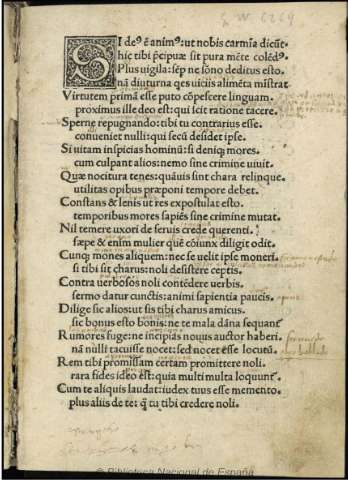 SI deꝰ ē animꝰ: ut nobis carmīa dicūt.
hic tibi p̄cipuæ sit pura mēte colēdꝰ.
Plus uigila: sēp ne sōno deditus esto.
nā diuturna q̄es uiciis alimēta mīstrat
Virtutem primā esse puto cōpescere linguam.
proximus ille deo est: qui scit ratione tacere.
Sperne repugnando: tibi tu contrarius esse.
conueniet nulli: qui secū desidet ipse.
Si uitam inspicias hominū: si deniq; mores.
cum culpant alios: nemo sine crimine uiuit.
Quæ nocitura tenes: quāuis sint chara relinque.
utilitas opibus præponi tempore debet.
Constans & lenis ut res expostulat esto.
temporibus mores sapiēs sine crimine mutat.
Nil temere uxori de seruis crede querenti.
sæpe & enim mulier quē cōiunx diligit odit.
Cunq; mones aliquem: nec se uelit ipse moneri.
si tibi sit charus: noli desistere ceptis.
Contra uerbosos noli contēdere uerbis.
sermo datur cunctis: animi sapientia paucis.
Dilige sic alios: ut sis tibi charus amicus.
sic bonus esto bonis: ne te mala dāna sequant᷑
Rumores fuge: ne incipias nouus auctor haberi.
nā nulli tacuisse nocet: sed nocet esse locutū.
Rem tibi promissam certam promittere noli.
rara fides ideo est: quia multi multa loquunt᷑
Cum te aliquis laudat: iudex tuus esse memento.
plus aliis de te: q̄ tu tibi credere noli.
© Biblioteca Nacional de España